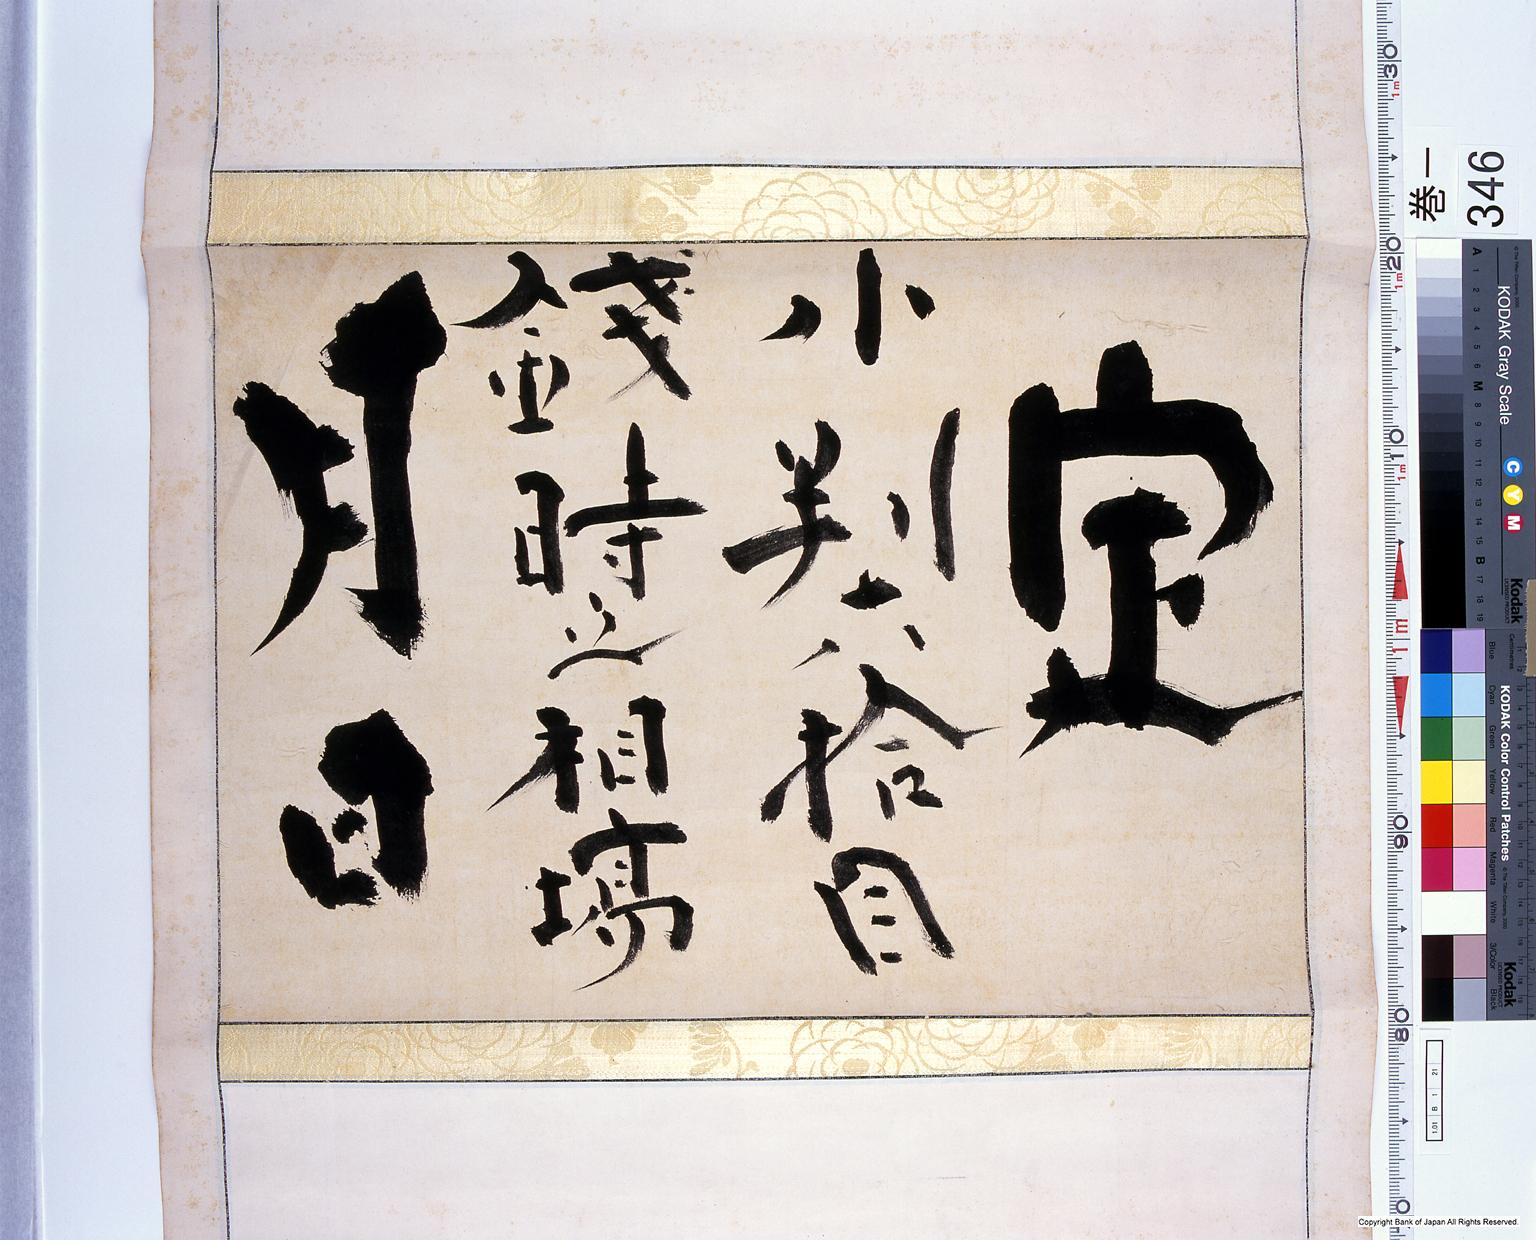 定
小判六拾目
錢時之相場
月日
巻一
346
KODAK Gray Scale
C Y M
Kodak
LICENSED PRODUCT
A 1 2 3 4 5 6 M 8 9 10 11 12 13 14 15 B 17 18 19
KODAK Color Control Patches
© The Tiffen Company, 2000
Blue Cyan Green Yellow Red Magenta White 3/Color Black
Kodak
LICENSED PRODUCT
Copyright Bank of Japan All Rights Reserved.